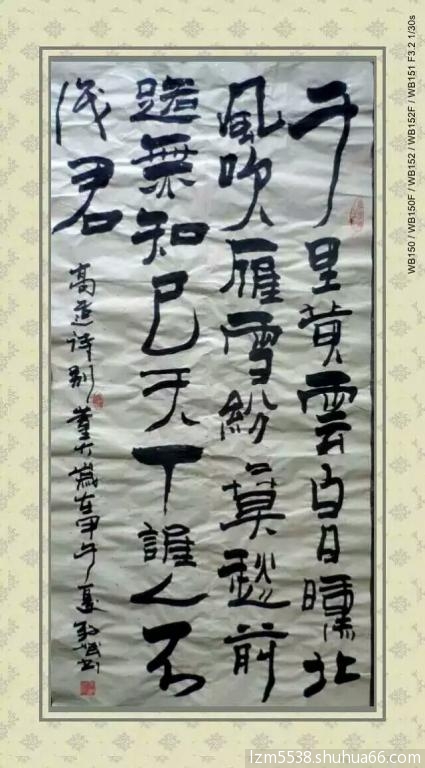 千里黄雲白日曛北
風吹雁雪紛〻莫愁前
路無知己天下誰人不
識君
高適詩别董大歲在甲午夏書
WB150 / WB150F / WB152 / WB152F / WB151 F3.2 1/30s
lzm5538.shuhua66.com